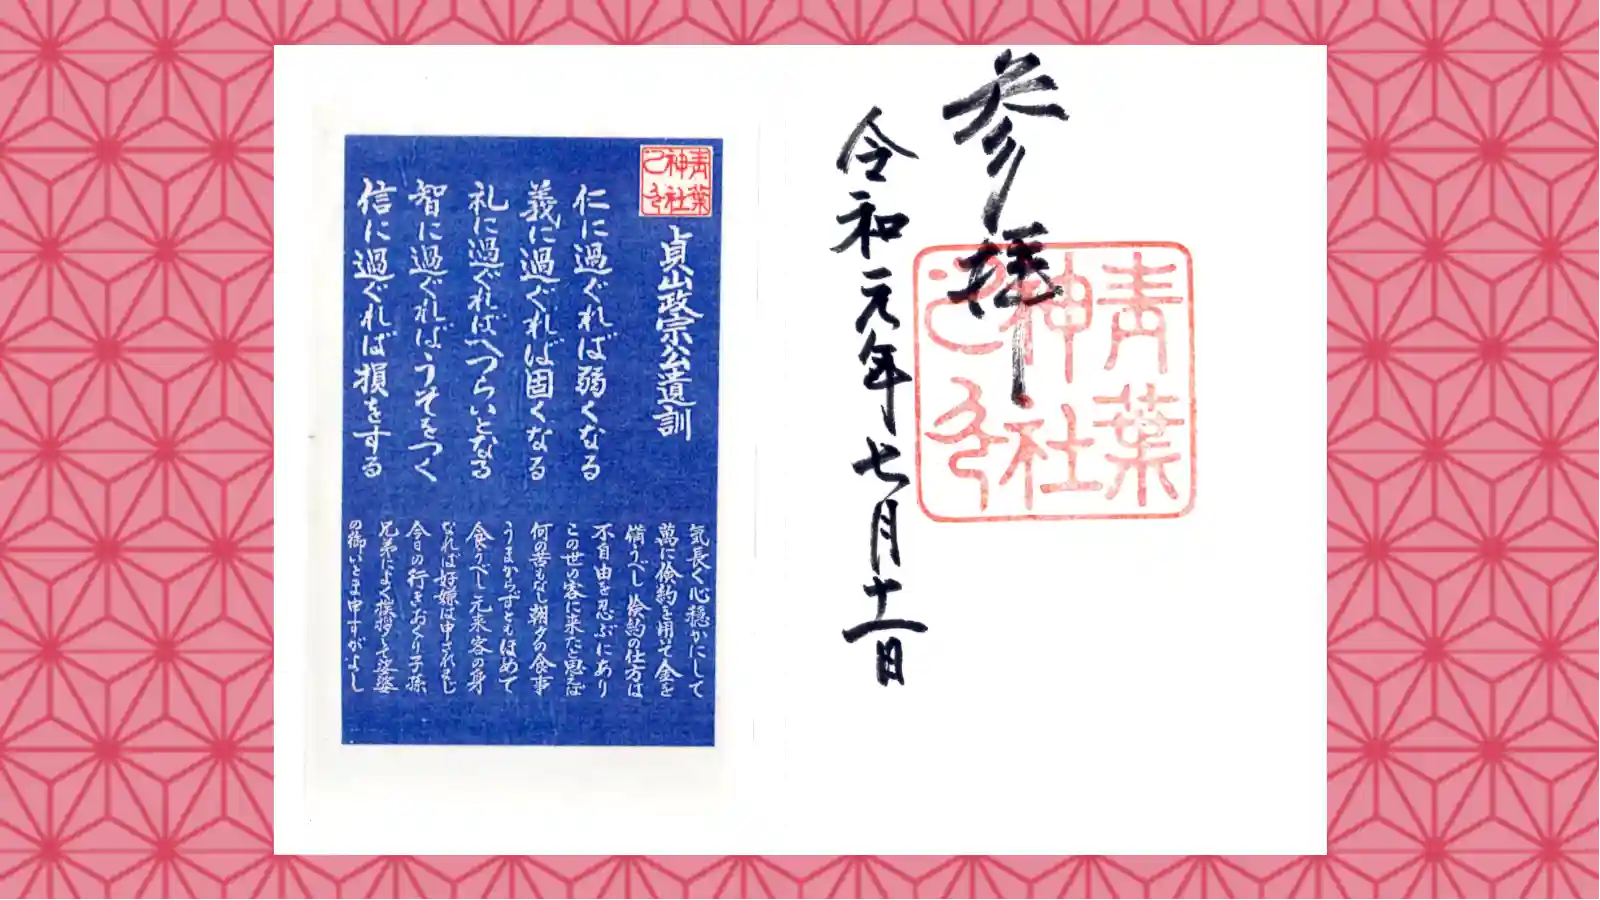 参拝
青葉
神社
之印
令和元年七月十一日
青葉
神社
之印
貞山政宗公遺訓
仁に過ぐれば弱くなる
義に過ぐれば固くなる
礼に過ぐればへつらいとなる
智に過ぐればうそをつく
信に過ぐれば損をする
気長く心穏かにして
萬に倹約を用いて金を
備うべし 倹約の仕方は
不自由を忍ぶにあり
この世の客に来たと思えば
何の苦もなし朝夕の食事
うまからずともほめて
食うべし 元来客の身
なれば好嫌は申されまじ
今日の行きおくり子孫
兄弟によく挨拶して娑婆
の御いとま申すがよし